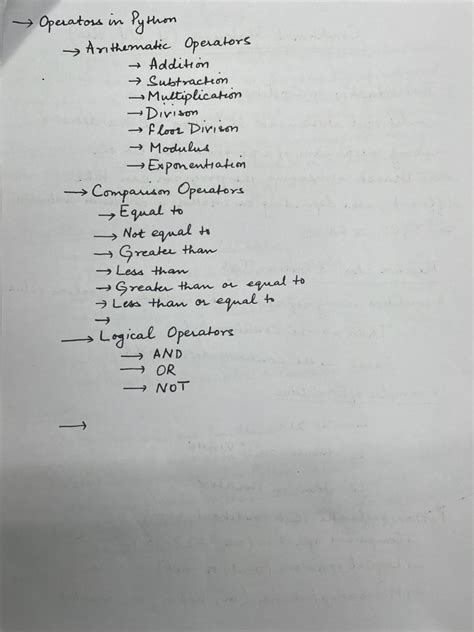 → Operators in Python
→ Arithematic Operators
→ Addition
→ Subtraction
→ Multiplication
→ Divison
→ Floor Divison
→ Modulus
→ Exponentiation
→ Comparison Operators
→ Equal to
→ Not equal to
→ Greater than
→ Less than
→ Greater than or equal to
→ Less than or equal to
→
→ Logical Operators
→ AND
→ OR
→ NOT
→